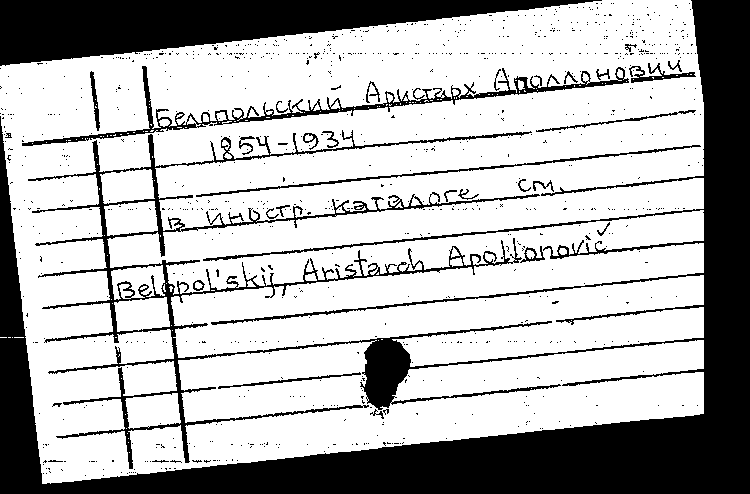 Белопольский, Аристарх Аполлонович
1854-1934
в иностр. каталоге см.
Belopol'skij, Aristarch Apollonovič